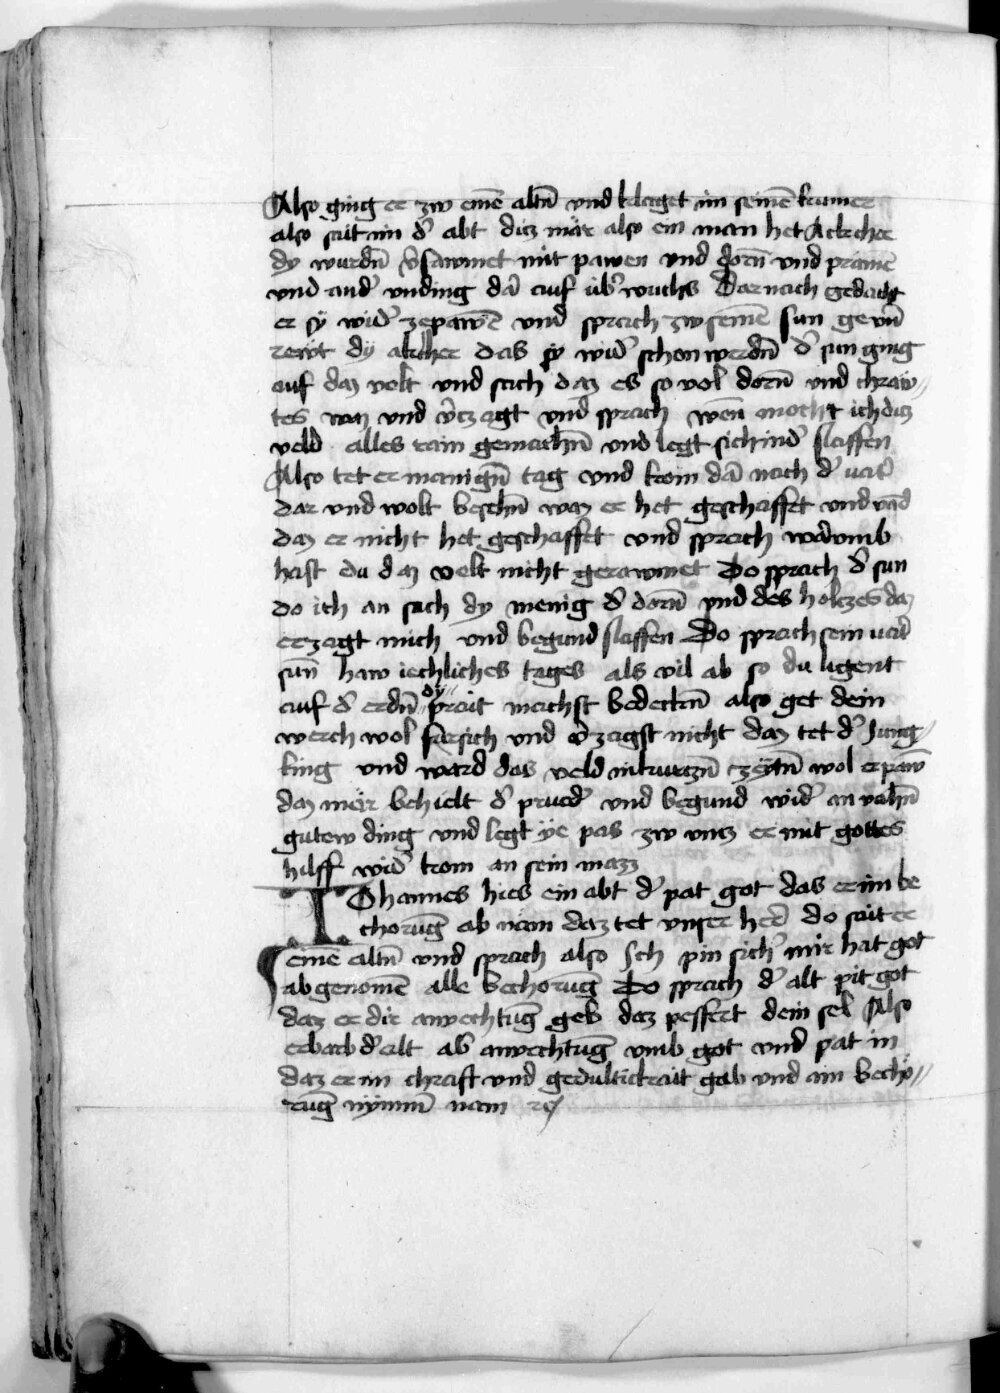 Also ging er zw eine͂ altn͂ vnd klaget im seine͂ kumer
also sait im d͛ abt dicz mär also ein man het Akcher
dy wurdn͂ v͛sawmet mit pawen vnd dorn͂ vnd prame͂
vnd and͛ vnding da͂ auf vb͛ wuchs Darnach gedacht
er sy wid͛ zepawe͂ vnd sprach zw seine͂ sun ge vn͂
rewt dy akcher das sy wid͛ schon werdn͂ d͛ sun ging
auf daz velt vnd sach daz es so vol dorn͂ vnd chraw〃
tes waz vnd v͛czagt vnd sprach wen͂ mocht ich dicz
veld alles rain gemachn͂ vnd legt sich in d͛ slaffen
Also tet er manign͂ tag vnd kom da͂ nach d͛ vat͛
dar vnd wolt beschn͂ waz er het geschaffet vnd vand
daz er nicht het geschaffet vnd sprach warvmb
hast du daz velt nicht gerawmet Do sprach d͛ sun
do ich an sach dy menig d͛ dorn͂ vnd des holczes daz
erzagt mich vnd begund slaffen Do sprach sein vat͛
sun͂ haw iechliches tages als vil ab so du ligent
auf d͛ erdn͂ dy prait machst bedekn͂ also get dein
werch wol fürsich vnd v͛zagst nicht daz tet d͛ Jung〃
king vnd ward das veld in kurczn͂ czeytn͂ wol erpaw͂
daz mär behielt d͛ prued͛ vnd begund wid͛ an vahn͂
gutew ding vnd legt ye pas zw vncz er mit gottes
hilff wid͛ kom an sein mazz
Johannes hies ein abt d͛ pat got das er im be
chorug͂ ab näm daz tet vnser her͛ do sait er
eine͂ altn͂ vnd sprach also Ich pin sich͛ mir hat got
abgenome͂ alle bechorug͂ Do sprach d͛ alt pit got
daz er dir anvechtug͂ geb daz pessert dein sel Also
erbarb d͛ alt ab͛ anvechtug͂ vmb got vnd pat in
daz er im chraft vnd gedultickait gab vnd am bechö〃
rug͂ nymm͛ nam